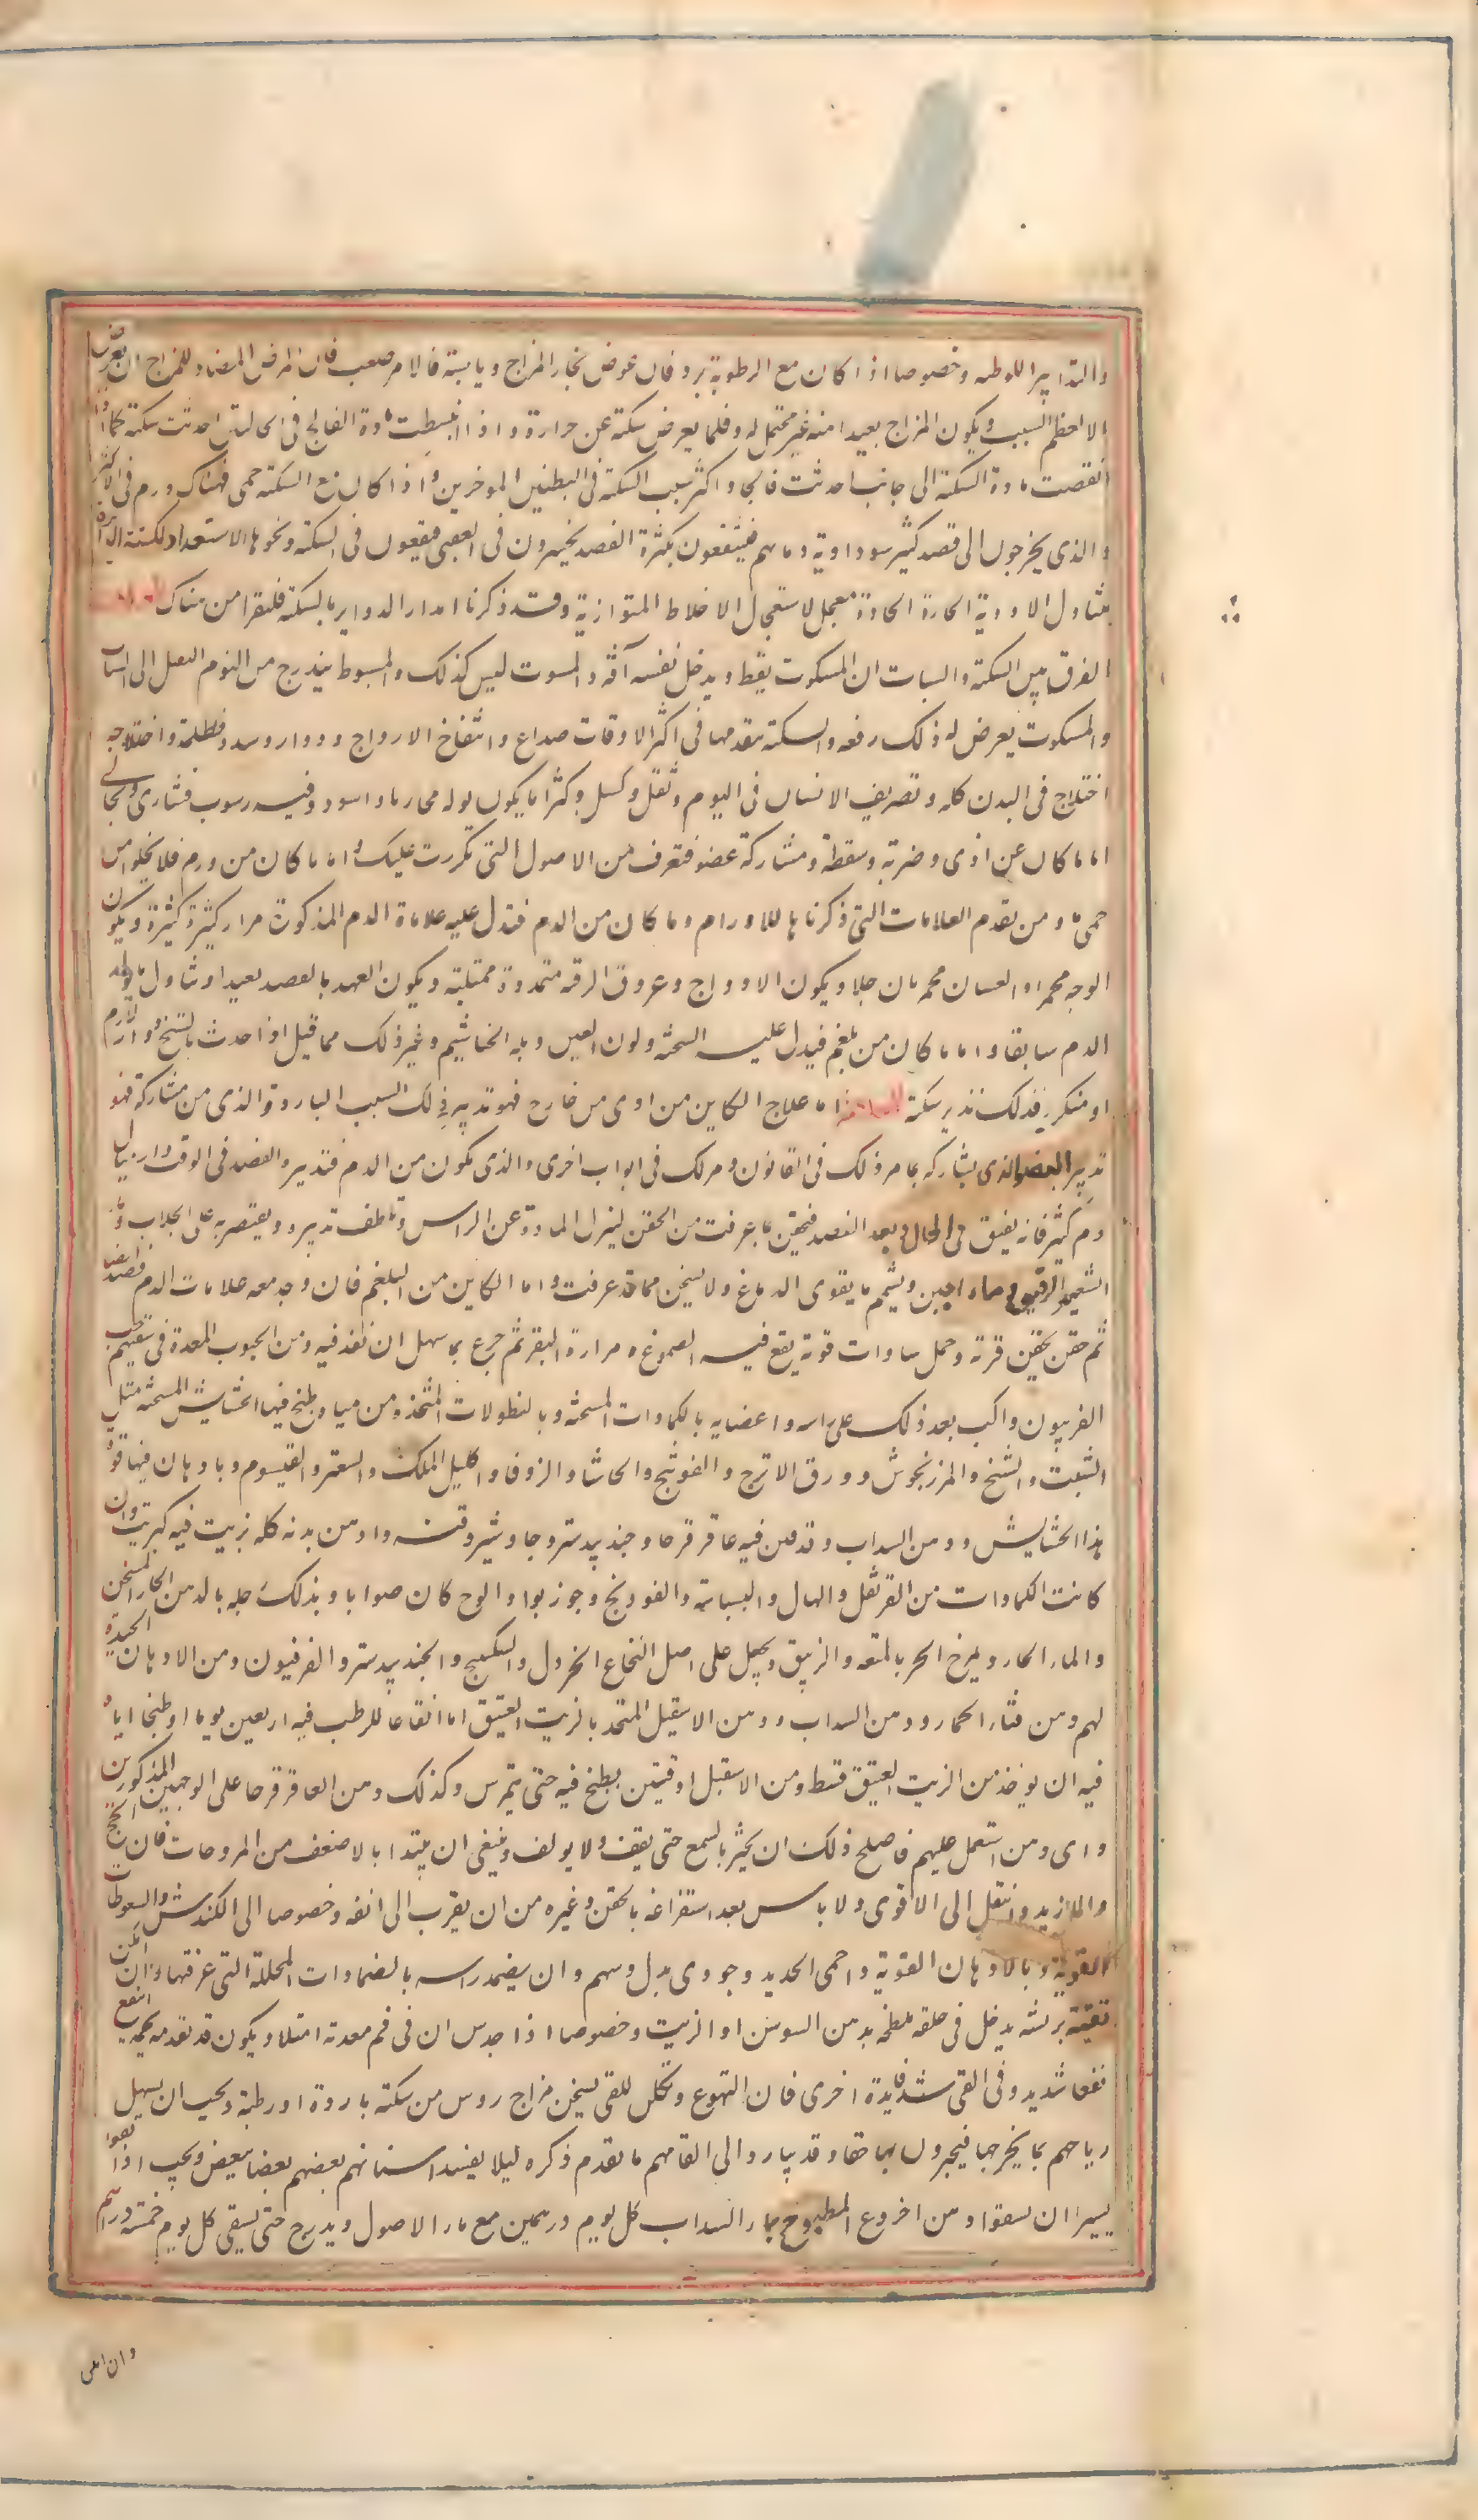 والتدابير اللوطه وخصوصا اذا كان مع الرطوبة برد فان عوض بخار المزاج ويابسة فالامر صعب فان المرض المضاد للمزاج ان يعرض
الا لعظم السبب ويكون المزاج بعيدا منه غير محتمل له وقلما يعرض سكتة عن حرارة واذا انبسطت مادة الفالج فى الجانبين احدثت سكتة كما اذا
انقصت مادة السكتة الى جانب احدثت فالجا واكثر سبب السكتة فى البطنين الموخرين واذا كان مع السكتة حمى فهناك ورم فى الاكثر
والذى يخرجون الى فصد كثير سوداوية دمائهم فينتفعون بكثرة الفصد يخسرون فى العقبى فيقعون فى السكتة ونحوها الاستعداد للسكتة
بتناول الادوية الحارة الحادة معجل لاستعجال الاخلاط المتوازية وقد ذكرنا امدار الدواير بالسكتة فليقرا من هناك العلامات
الفرق بين السكتة والسبات ان المسكوت يغط ويدخل نفسه آفة والمسبوت ليس كذلك والمسبوط يتدرج من النوم الثقيل الى السبات
والمسكوت يعرض له ذلك دفعه والسكتة يتقدمها فى اكثر الاوقات صداع وانتفاخ الاوداج ودوار وسدر وظلمة واختلاجه
اختلاج فى البدن كله وتصريف الاسنان فى النوم وثقل وكسل وكثيرا ما يكون بوله زنجاريا واسود وفيه رسوب قشارى ونخالى
اما ما كان عن اذى وضربة وسقطة ومشاركة عضو فتعرف من الاصول التى تكررت عليك واما ما كان من ورم فلا يخلوا من
حمى ما ومن تقدم العلامات التى ذكرناها للاورام وما كان من الدم فتدل عليه علامات الدم المذكورة مرار كثيرة كثيرة ويكون
الوجه محمرا والعينان محمرتان جدا ويكون الاوداج وعروق الرقبة متمددة ممتلئة ويكون العهد بالفصد بعيدا وتناول ما يولد
الدم سابقا واما ما كان من بلغم فيدل عليه السحنة ولون العين وبلة الخياشيم وغير ذلك مما قيل واذا حدث بالتشنج دوار لازم
او متكرر فذلك نذير سكتة المعالجة اما علاج الكاين من اذى من خارج فهو تدبير ذلك السبب البارد والذى من مشاركة فهو
تدبير العضو الذى يشاركه بما مر ذلك فى القانون ومر لك فى ابواب اخرى والذى يكون من الدم فتدبيره الفصد فى الوقت وارسال
دم كثير فانه يفيق فى الحال وبعد الفصد فيحقن بما عرفت من الحقن لينزل المادة عن الراس وتلطف تدبيره ويقتصر به على الجلاب وماء
الشعير الرقيق وماء الجبن ويشمم ما يقوى الدماغ ولا يسخن مما قد عرفت واما الكاين من البلغم فان وجد معه علامات الدم فصد ايضا
ثم حقن بحقن قوية وحمل شيافات قوية يقع فيه الصموغ ومرارة البقر ثم جرع بما سهل ان نفذ فيه ومن الحبوب المعدة فى سقيهم حب
الفربيون واكب بعد ذلك على راسه واعضايه بالكمادات المسخنة وبالنطولات المتخذة من مياه طبخ فيها الحشايش المسخنة مثل
الشبت والشيخ والمرزنجوش وورق الاترج والفوتنج والحاشا والزوفا واكليل الملك والسعتر والقيسوم وبادهان فيها قوة
هذا الحشايش ودهن السداب وقد فتق فيه عاقر قرحا وجند بيدستر وجاوشير وقنه وادهن بدنه كله بزيت فيه كبريت وان
كانت الكمادات من القرنفل والهال والبسباسة والفودنج وجوزبوا والوج كان صوابا وبذلك رجله بالدهن الحار المسخن
والماء الحار ويمرخ الخرز بالميعه والزنبق ويجعل على اصل النخاع الخردل والسكبينج والجند بيدستر والفرفيون ومن الادهان الجيدة
لهم دهن قثاء الحمار ودهن السداب ودهن الاسقيل المتخذ بالزيت العتيق اما انقاعا للرطب فيه اربعين يوما او طبخا اياه
فيه ان يوخذ من الزيت العتيق قسط ومن الاسقيل اوقيتين يطبخ فيه حتى يتهرس وكذلك دهن العاقر قرحا على الوجهين المذكورين
واى دهن استعمل عليهم فاصلح ذلك ان يكثر بالشمع حتى يقف ولا يولف وينبغى ان يبتدا بالاضعف من المروخات فان انجح
والا زيد وانتقل الى الاقوى ولا باس بعد استفراغه بالحقن وغيره من ان يقرب الى انفه وخصوصا الى الكندش والسعوطات
القوية وبالادهان القوية واحمى الحديد وحوذى به راسهم وان يضمد راسه بالضمادات المحللة التى عرفتها وان امكن
تقيئه بريشه يدخل فى حلقه ملطخة بدهن السوسن او الزيت وخصوصا اذا حدس ان فى فم معدته امتلا ويكون قد تقدمه تخمة انتفع
نفعا شديد وفى القى فايدة اخرى فان التهوع وتكلف القى يسخن مزاج روس من سكتة باردة او رطبة ويجب ان يسهل
رياحهم بما يخرجها فيجدون بها خفا وقد يبادر والى القامهم ما تقدم ذكره ليلا يفسد اسنانهم بعضهم بعضا ببعض ويجب اذا فاقوا
يسيرا ان يسقوا دهن الخروع المطبوخ بماء السداب كل يوم درهمين مع ماء الاصول ويدرج حتى يسقى كل يوم خمسة دراهم
وان امكن